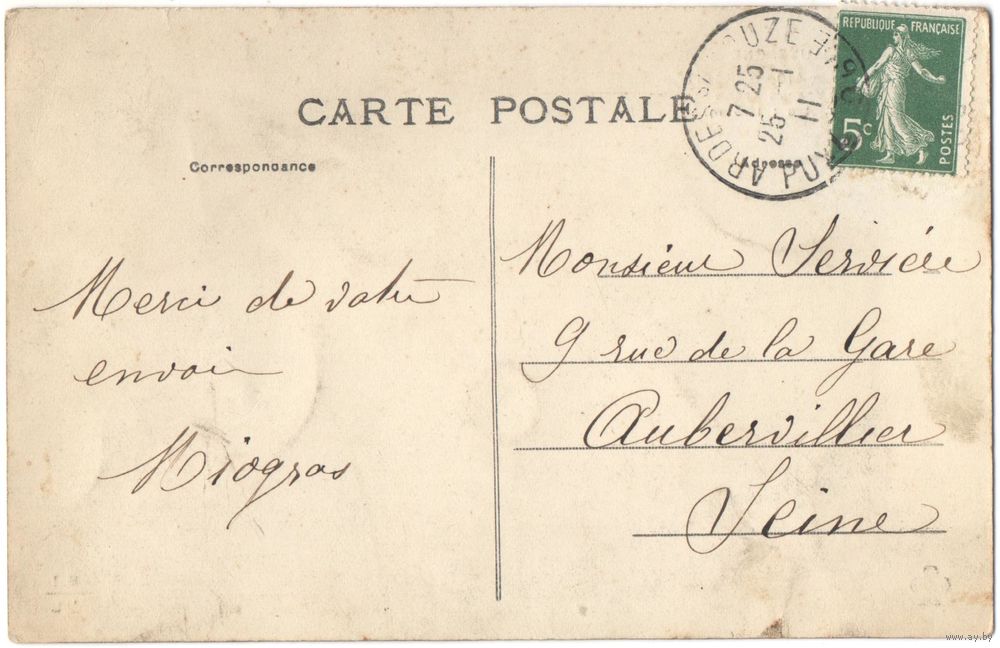 CARTE POSTALE
Correspondance
Adresse
RÉPUBLIQUE FRANÇAISE
5c
POSTES
ARDES
COUZE
PUY
7 25
25 -1
11
Merci de votre
envoi
Monsieur Servière
9 rue de la Gare
Aubervillier
Seine
www.ay.by